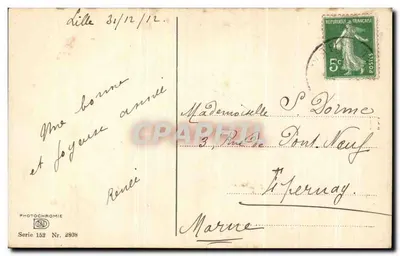 Lille 31/12/12
Une bonne
et joyeuse année
Renée
PHOTOCHROMIE
Serie 152 Nr. 2808
REPUBLIQUE FRANÇAISE
5c
POSTES
Mademoiselle S. Dorme
3, Rue de Pont Neuf
Epernay
Marne
CPARAMA